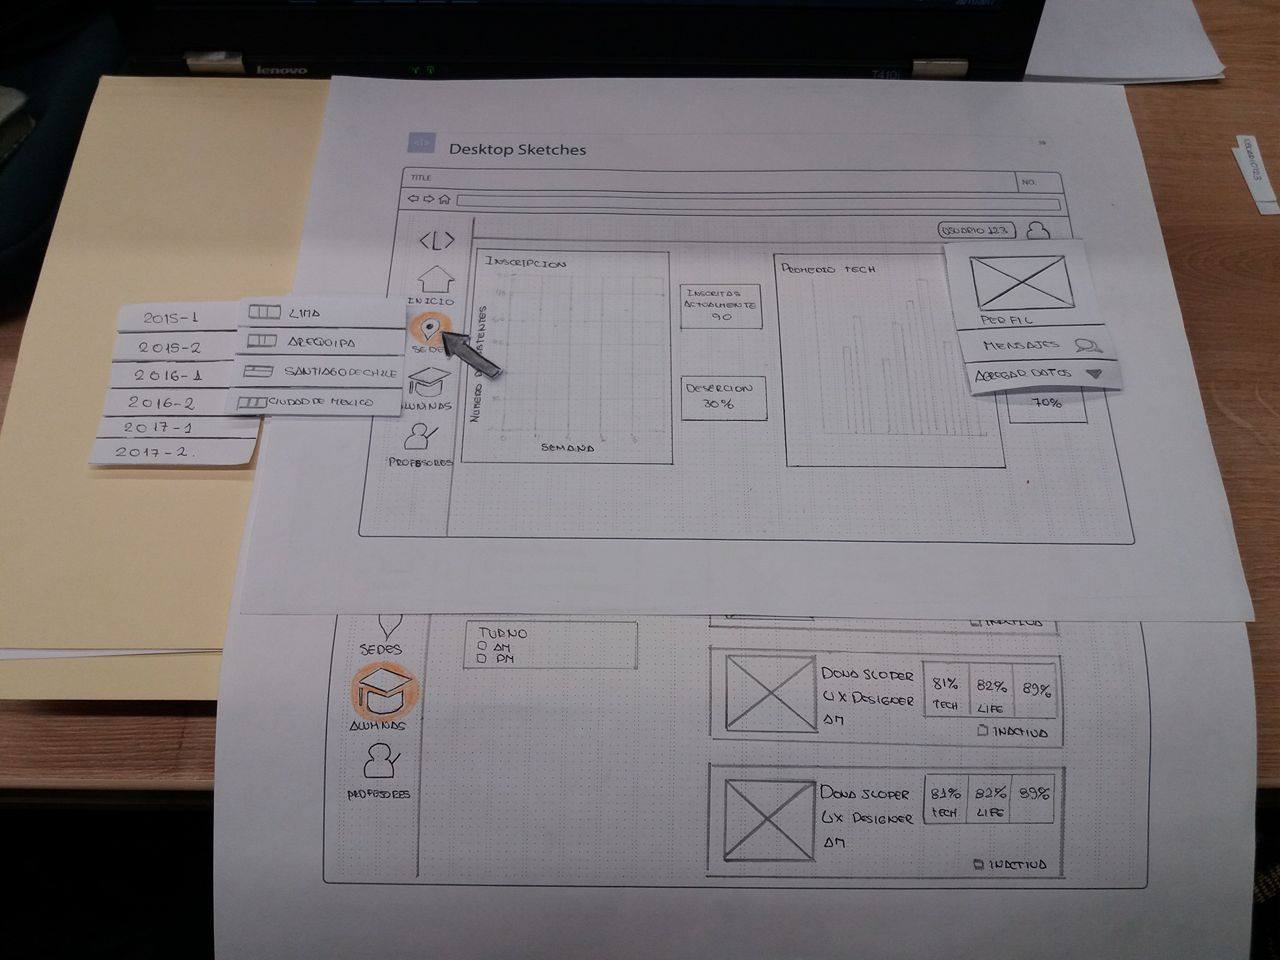 lenovo
T410i
Desktop Sketches
TITLE
NO.
<L>
USUARIO 123
INICIO
SEDE
ALUMNAS
PROFESORES
2015-1
2015-2
2016-1
2016-2
2017-1
2017-2.
LIMA
AREQUIPA
SANTIAGO DE CHILE
CIUDAD DE MEXICO
INSCRIPCION
SEMANA
INSCRITAS
ACTUALMENTE
90
DESERCION
30%
PROMEDIO TECH
PERFIL
MENSAJES
AGREGAR DATOS
70%
SEDES
ALUMNAS
PROFESORES
TURNO
AM
PM
INACTIVA
DONA SLOPER
UX DESIGNER
AM
81% 82% 89%
TECH LIFE
INACTIVA
DONA SLOPER
UX DESIGNER
AM
81% 82% 89%
TECH LIFE
INACTIVA